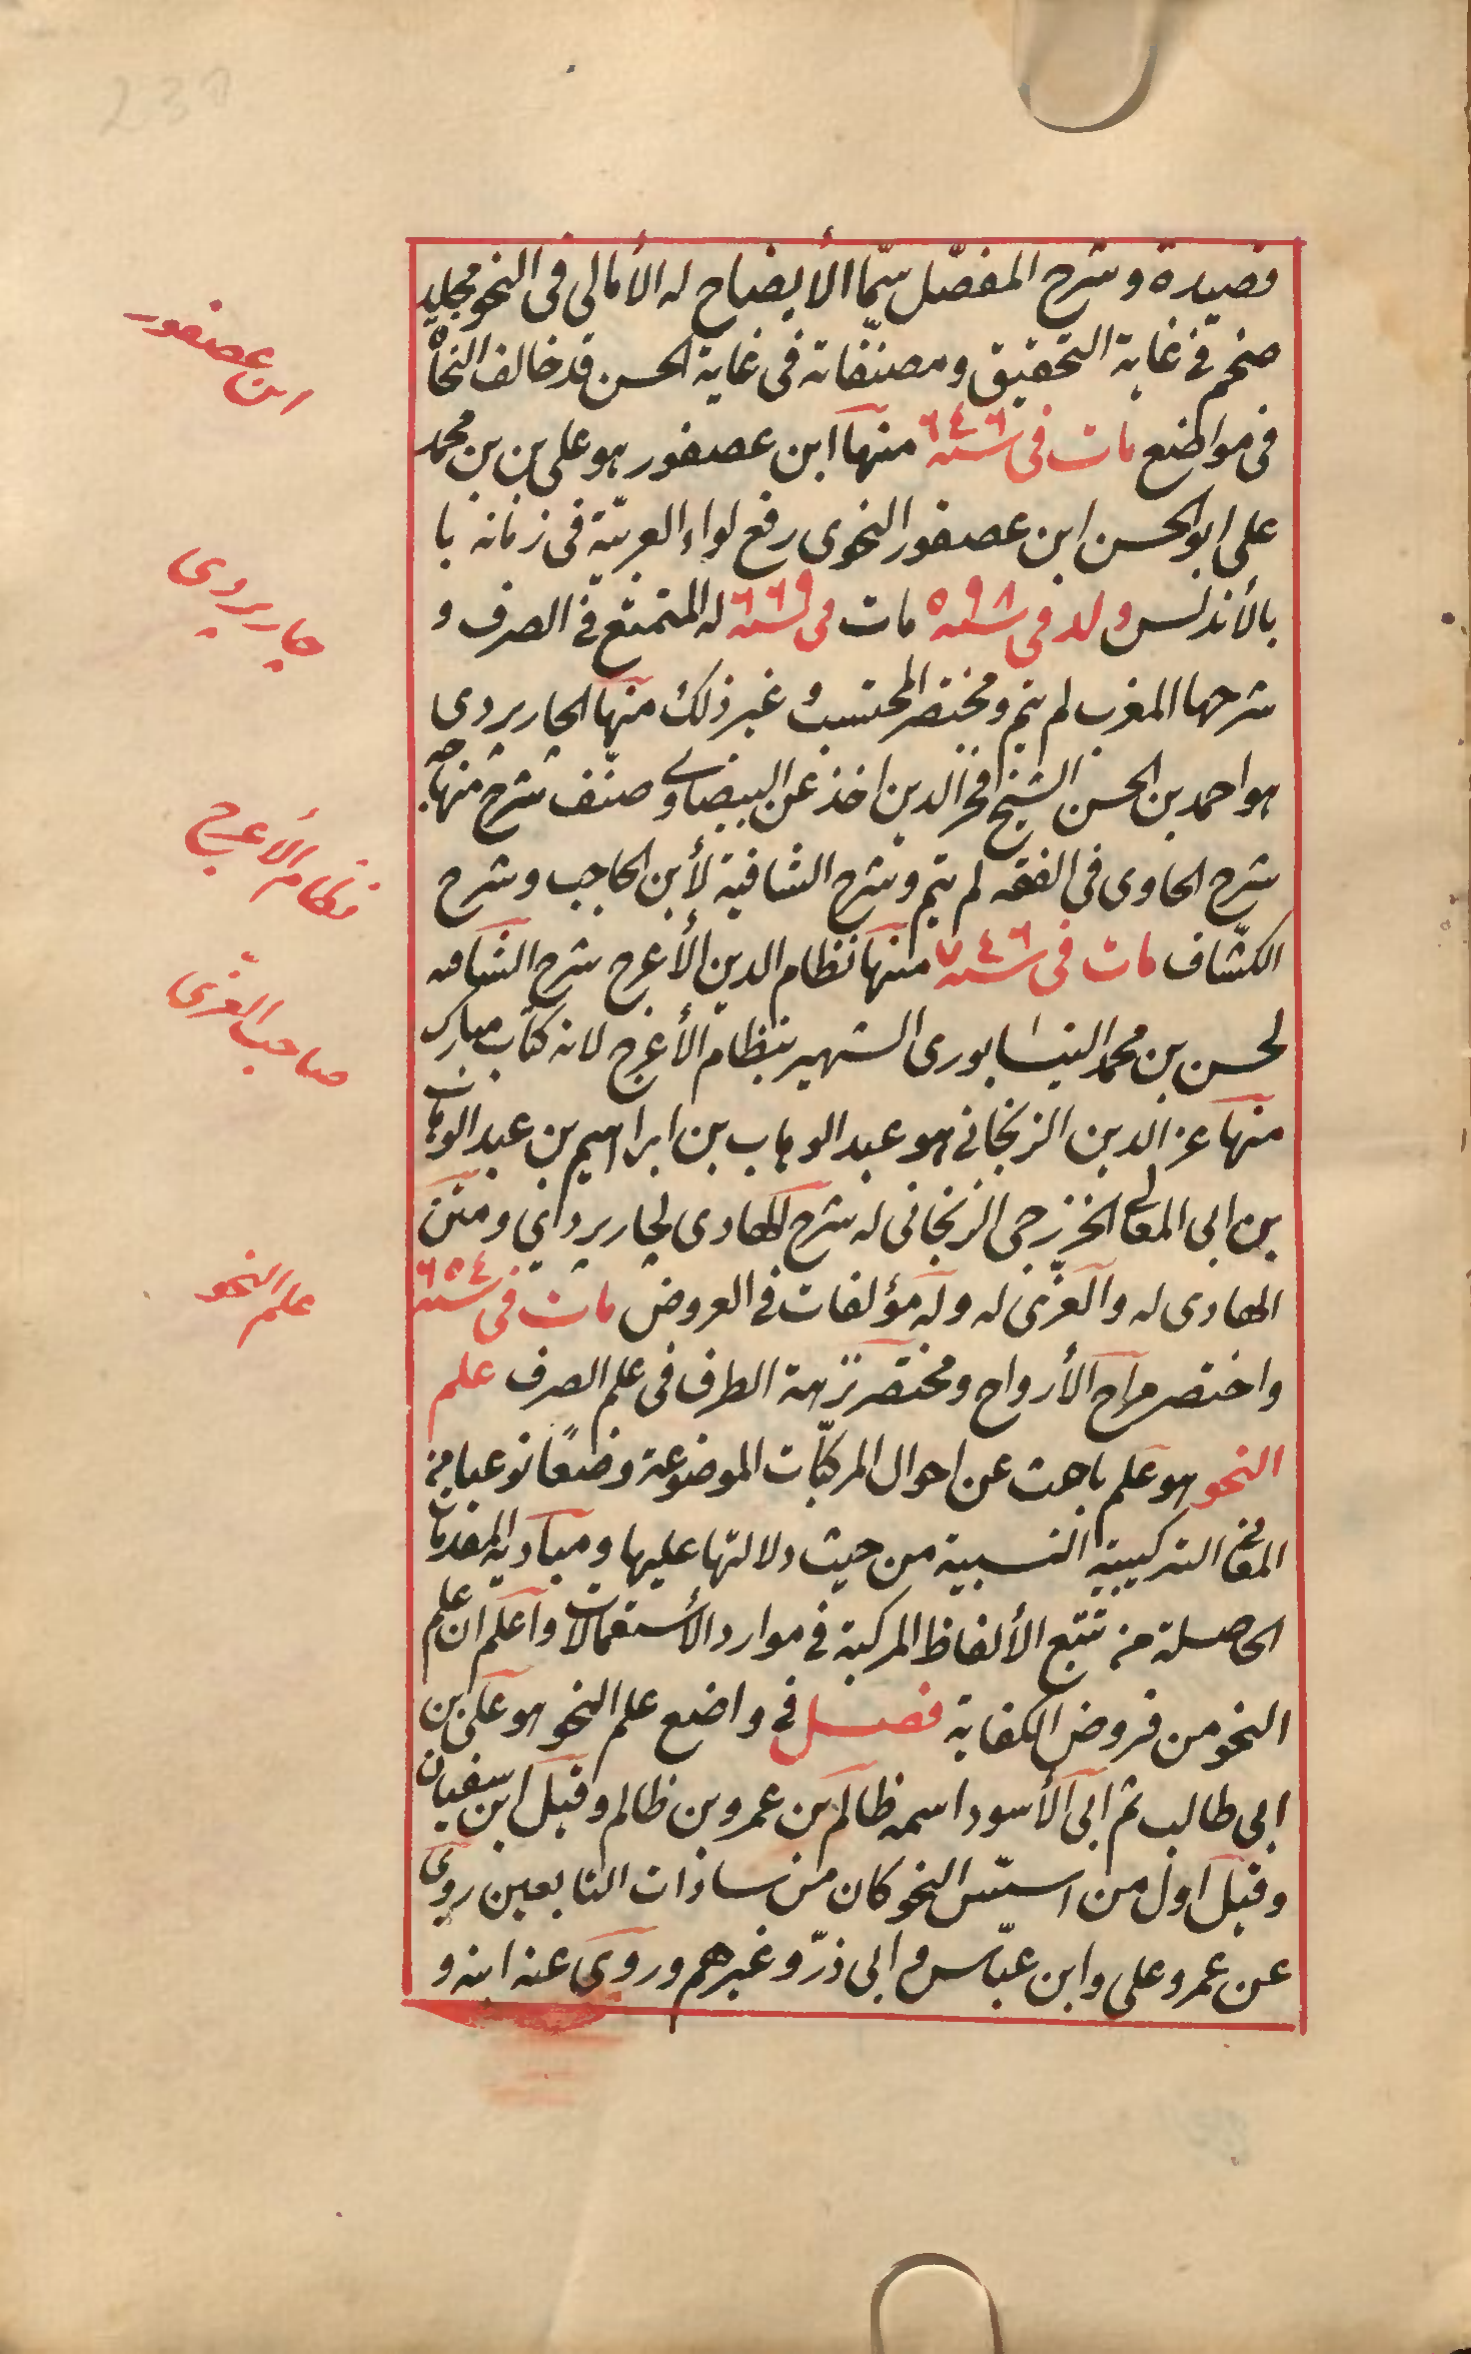 قصيدة و شرح المفصّل سمّا الأيضاح له الأمالى فى النحو مجليد
ضخم فى غاية التحقيق ومصنّفاته فى غاية الحسن قد خالف النحاة
ابن عصفور
فى مواضع مات فى سنه ٦٤٦ منها ابن عصفور هو على بن بن محمد
على ابو الحسن ابن عصفور النحوى رفع لواء العربيّة فى زمانه با
بالأندلس ولد فى سنه ٥٩٨ مات فى سنه ٦٦٩ له الممتع فى الصرف و
جاربردى
شرحها المغرب لم يتم ومختصر المحتسب و غير ذلك منها الجاربردى
هو احمد بن الحسن الشيخ فخر الدين اخذ عن البيضاوى و صنّف شرح منهاج
شرح الحاوى فى الفقه لم يتم وشرح الشافية لأبن الحاجب وشرح
نظام الأعرج
الكشّاف مات فى سنه ٧٤٦ منها نظام الدين الأعرج شرح الشافيه
لحسن بن محمد النيشابورى الشهير بنظام الأعرج لانه كتاب مبارك
صاحب العزّى
منها عز الدين الزنجانى هو عبد الوهاب بن ابراهيم بن عبد الوهاب
بن ابى المعالى الخزرجى الزنجانى له شرح الهادى لجاربردانى و متن
الهادى له والعزّى له وله مؤلفات فى العروض مات فى سنه ٦٥٤
علم النحو
واختصر مراح الأرواح ومختصر نزهة الطرف فى علم الصرف علم
النحو هو علم باحث عن احوال المركبّات الموضوعة وضعًا نوعيا من
المعانى التركيبية النسبية من حيث دلالتها عليها و مباديه المقدمات
الحاصلة من تتبع الألفاظ المركبة فى موارد الأستعمالات واعلم ان علم
النحو من فروض الكفاية فصل فى واضع علم النحو هو على بن
ابى طالب ثم ابى الأسود اسمه ظالم بن عمرو بن ظالم وقيل ابن سفيان
وقيل اول من اسسّ النحو كان من سادات التابعين روى
عن عمر وعلى وابن عبّاس و ابى ذرّ وغيرهم وروى عنه ابنه و